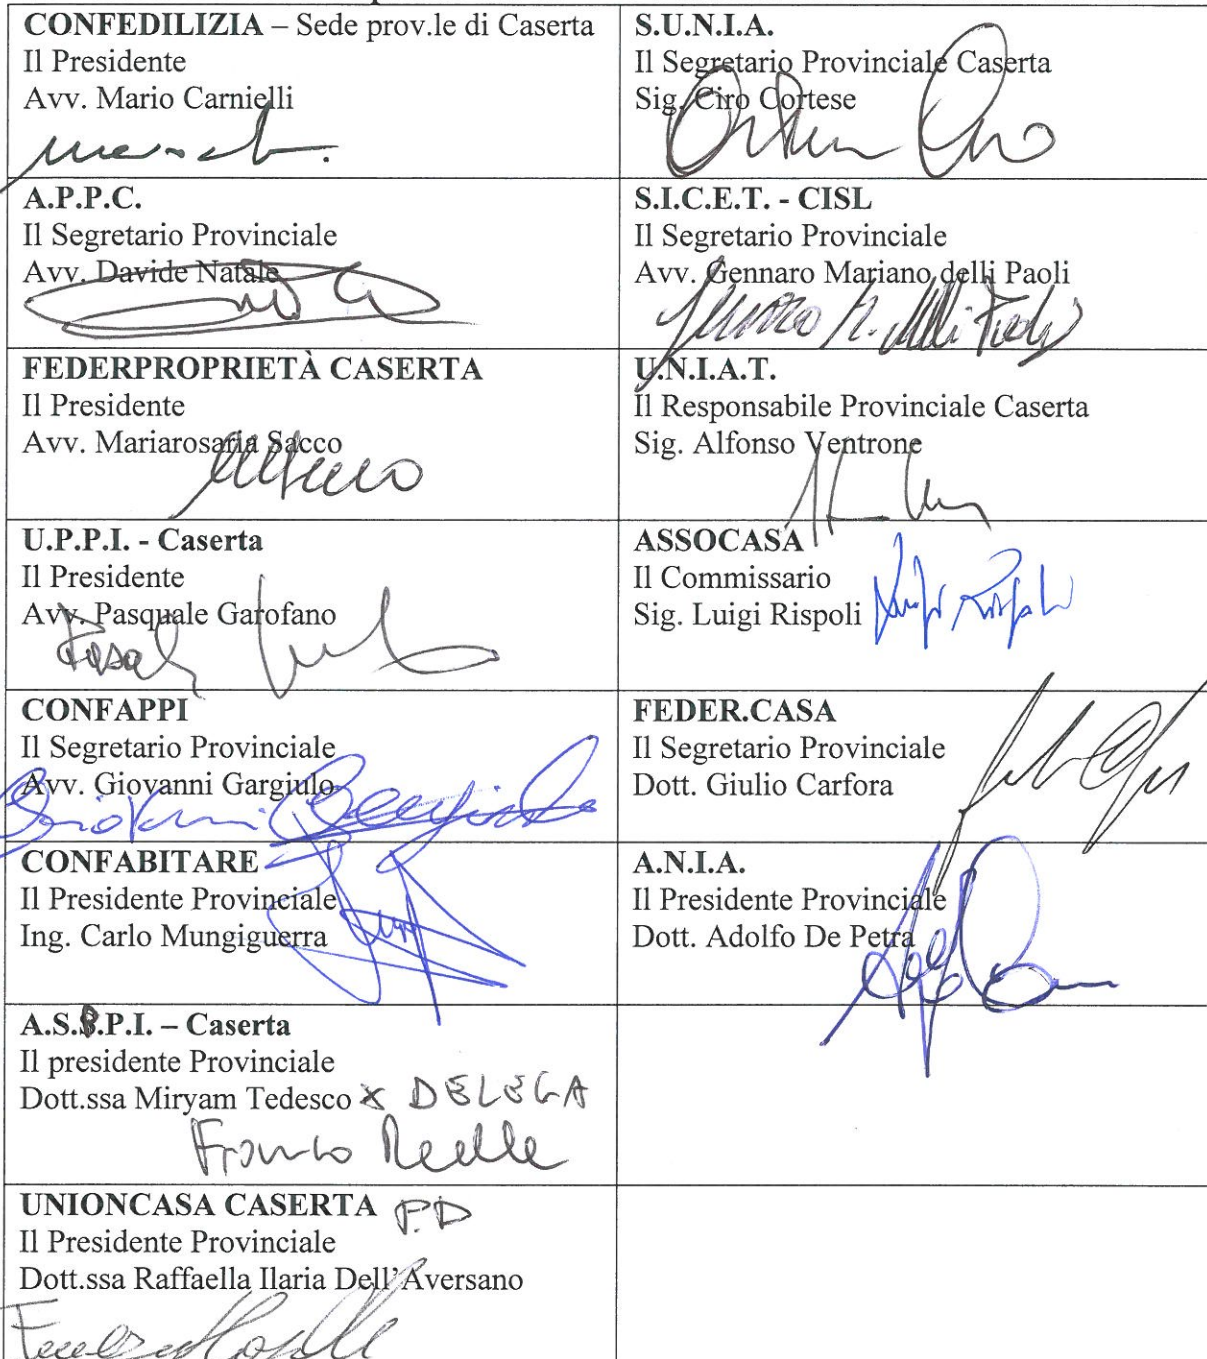 CONFEDILIZIA – Sede prov.le di Caserta
Il Presidente
Avv. Mario Carnielli
S.U.N.I.A.
Il Segretario Provinciale Caserta
Sig. Ciro Cortese
A.P.P.C.
Il Segretario Provinciale
Avv. Davide Natale
S.I.C.E.T. - CISL
Il Segretario Provinciale
Avv. Gennaro Mariano delli Paoli
FEDERPROPRIETÀ CASERTA
Il Presidente
Avv. Mariarosaria Sacco
U.N.I.A.T.
Il Responsabile Provinciale Caserta
Sig. Alfonso Ventrone
U.P.P.I. - Caserta
Il Presidente
Avv. Pasquale Garofano
ASSOCASA
Il Commissario
Sig. Luigi Rispoli
Luigi Rispoli
CONFAPPI
Il Segretario Provinciale
Avv. Giovanni Gargiulo
Giovanni Gargiulo
FEDER.CASA
Il Segretario Provinciale
Dott. Giulio Carfora
CONFABITARE
Il Presidente Provinciale
Ing. Carlo Mungiguerra
A.N.I.A.
Il Presidente Provinciale
Dott. Adolfo De Petra
A.S.P.P.I. – Caserta
Il presidente Provinciale
Dott.ssa Miryam Tedesco x DELEGA
UNIONCASA CASERTA P.D
Il Presidente Provinciale
Dott.ssa Raffaella Ilaria Dell'Aversano